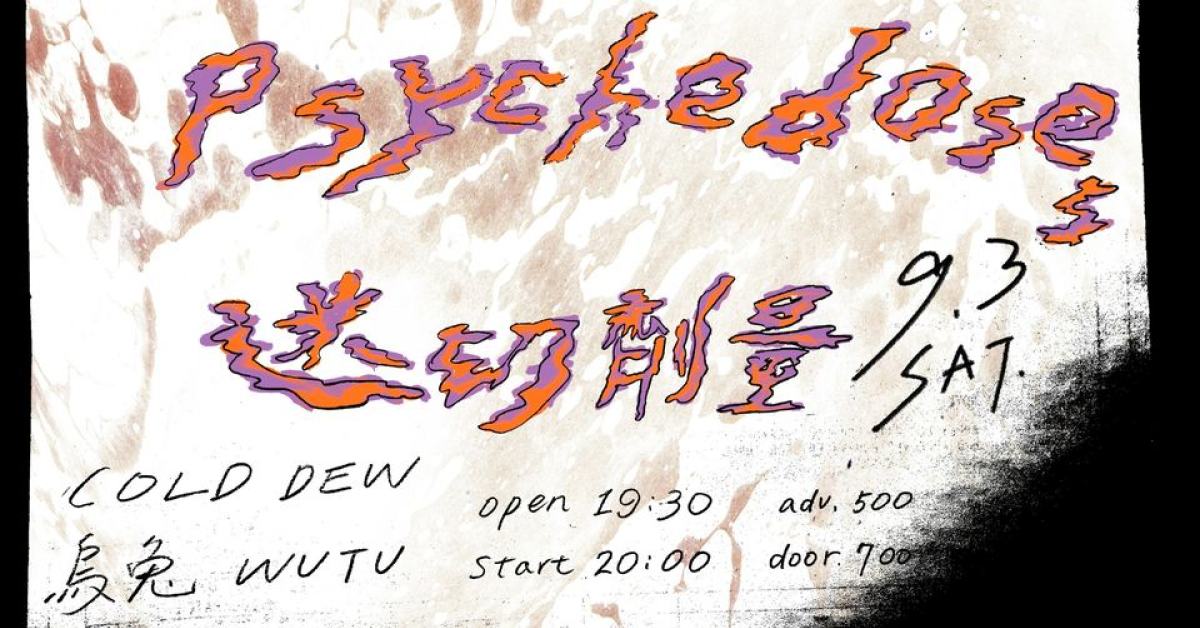 Psychedoses
迷切劑量
9.3
SAT.
COLD DEW
烏兔 WUTU
open 19:30
start 20:00
adv. 500
door. 700